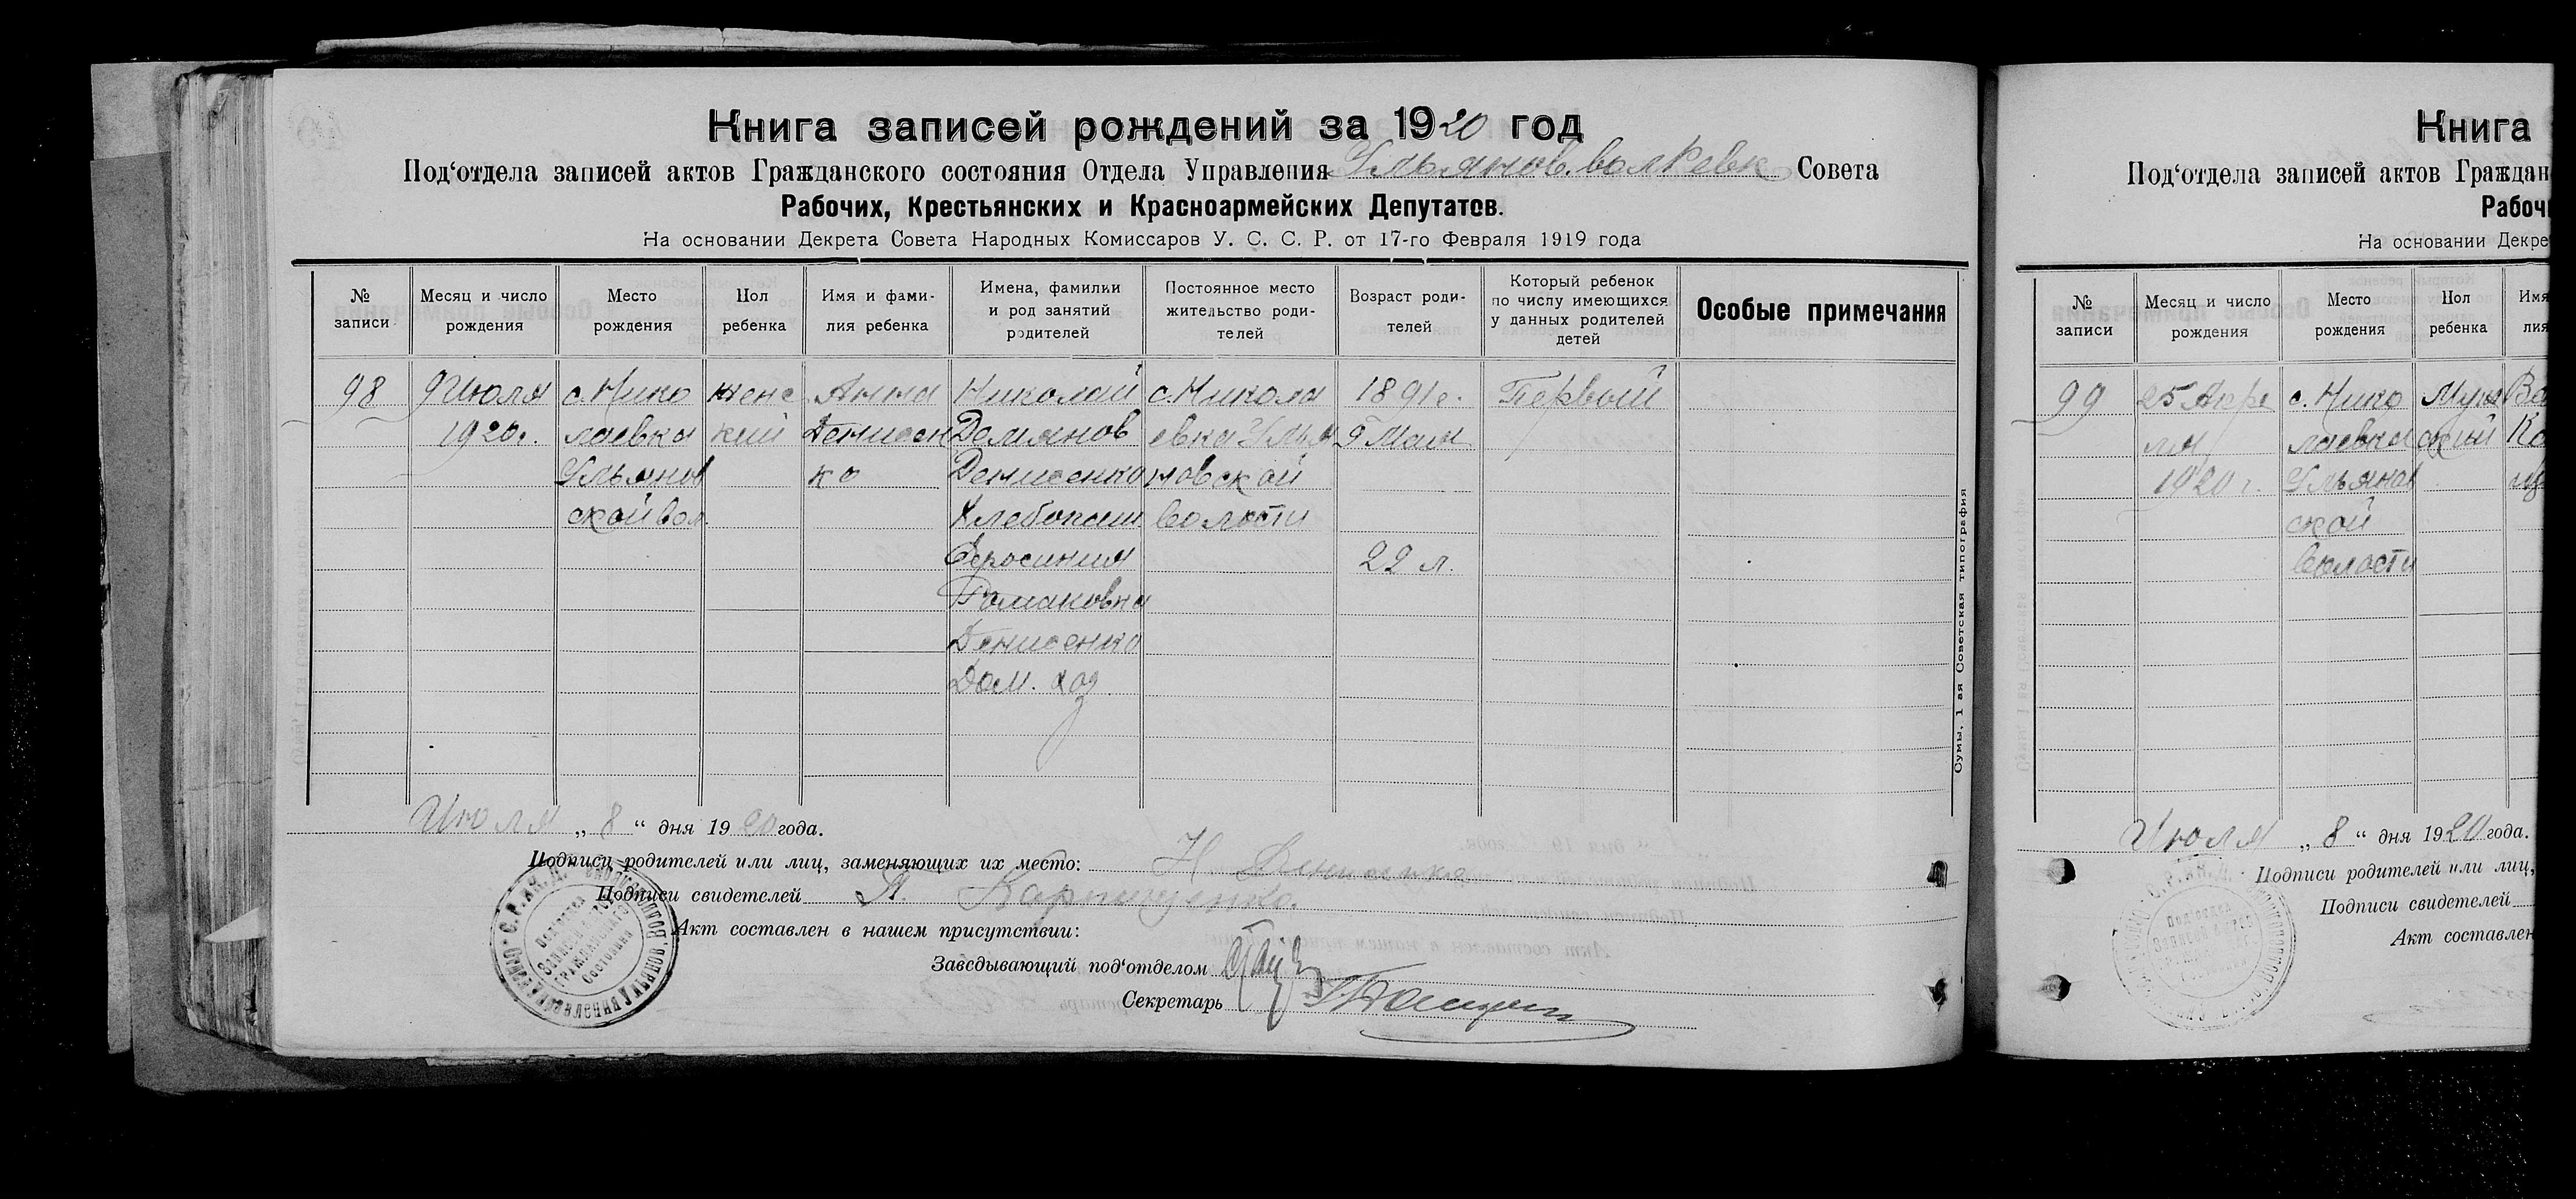 Книга записей рождений за 1920 год
Под‘отдела записей актов Гражданского состояния Отдела Управления Ульянов. вол Ревк Совета
Рабочих, Крестьянских и Красноармейских Депутатов.
На основании Декрета Совета Народных Комиссаров У. С. С. Р. от 17-го Февраля 1919 года
№ записи
Месяц и число рождения
Место рождения
Пол ребенка
Имя и фами-
лия ребенка
Имена, фамилки
и род занятий
родителей
Постоянное место
жительство роди-
телей
Возраст роди-
телей
Который ребенок
по числу имеющихся
у данных родителей
детей
Особые примечания
98
9 Июля
1920г.
с. Нико
лаевка
Ульянов
ской вол.
женс
кий
Анна
Денисен
ко
Николай
Демянов
Денисенко
Хлебопаш
Ефросиния
Романовна
Денисенко
Дом. хоз
с. Никола
евка Улья
новской
Волости
1891г.
9 Мая
22 л.
Первый
Июля „ 8 “ дня 1920 года.
Подписи родителей или лиц, заменяющих их место: Н. Денисенко
Подписи свидетелей
Акт составлен в нашем присутствии:
Заведывающий под‘отделом
Секретарь
Сумы, 1 ая Советская типография
Книга
Под‘отдела записей актов Граждан
Рабочи
На основании Декре
№ записи
Месяц и число рождения
Место рождения
Пол ребенка
Имя
лия
99
25 Апре
ля
1920 г.
с. Нико
лаевка
Ульянов
ской
Волости
Муж
ской
Ва
Июля „ 8 “ дня 1920 года.
Подписи родителей или лиц,
Подписи свидетелей
Акт составлен